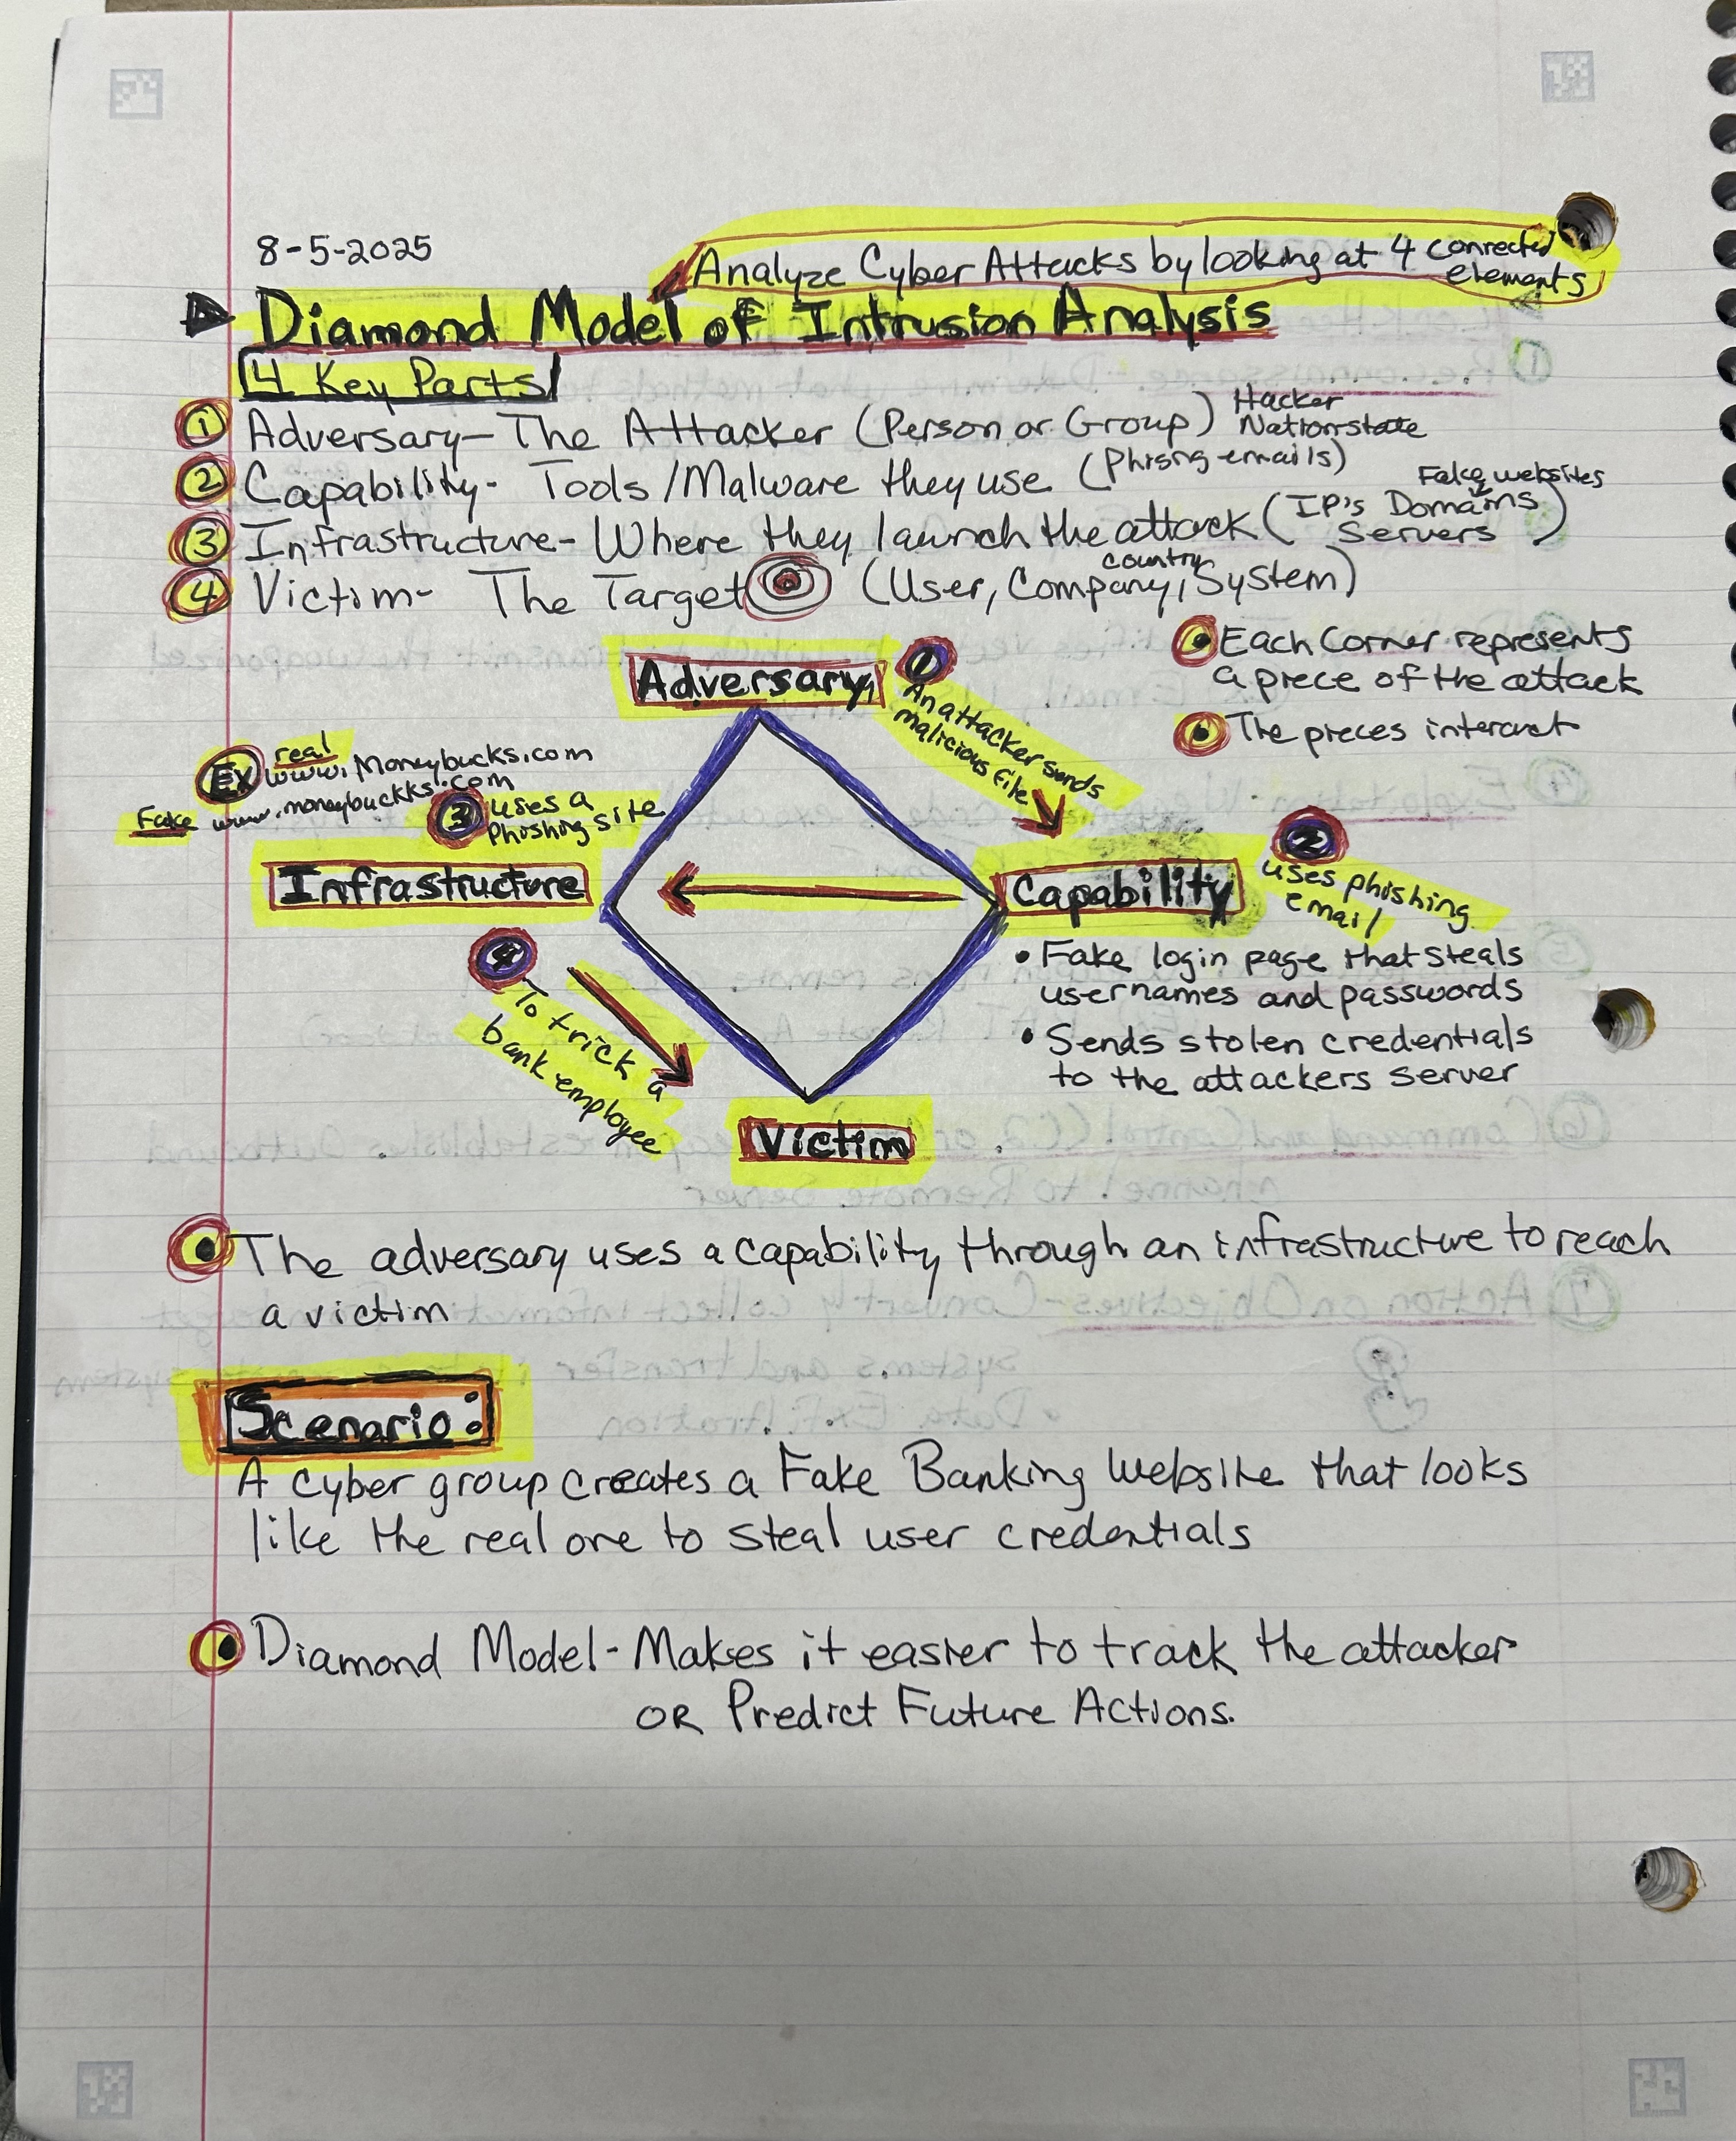 8-5-2025
Analyze Cyber Attacks by looking at 4 connected
elements
Diamond Model of Intrusion Analysis
4 Key Parts
① Adversary- The Attacker (Person or Group) Hacker
Nationstate
② Capability- Tools/Malware they use (Phisng emails)
Fake websites
③ Infrastructure- Where they launch the attack (IP's Domains
Servers)
④ Victim- The Target (User, Company, country, System)
• Each Corner represents
a piece of the attack
• The pieces interact
Adversary
1 An attacker sends
malicious file
Ex real www.Moneybucks.com
Fake www.moneybuckks.com
3 uses a
Phishing site
Infrastructure
Capability
2 uses phishing
email
• Fake login page that steals
usernames and passwords
• Sends stolen credentials
to the attackers server
4 To trick a
bank employee
Victim
• The adversary uses a capability through an infrastructure to reach
a victim
Scenario:
A cyber group creates a Fake Banking Website that looks
like the real one to steal user credentials
• Diamond Model- Makes it easier to track the attacker
OR Predict Future Actions.